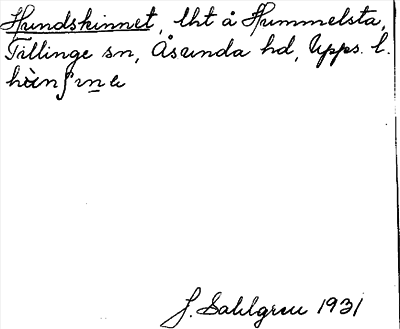 Hundskinnet, lht å Hummelsta,
Tillinge sn, Åsunda hd, Upps. l.
J. Sahlgren 1931